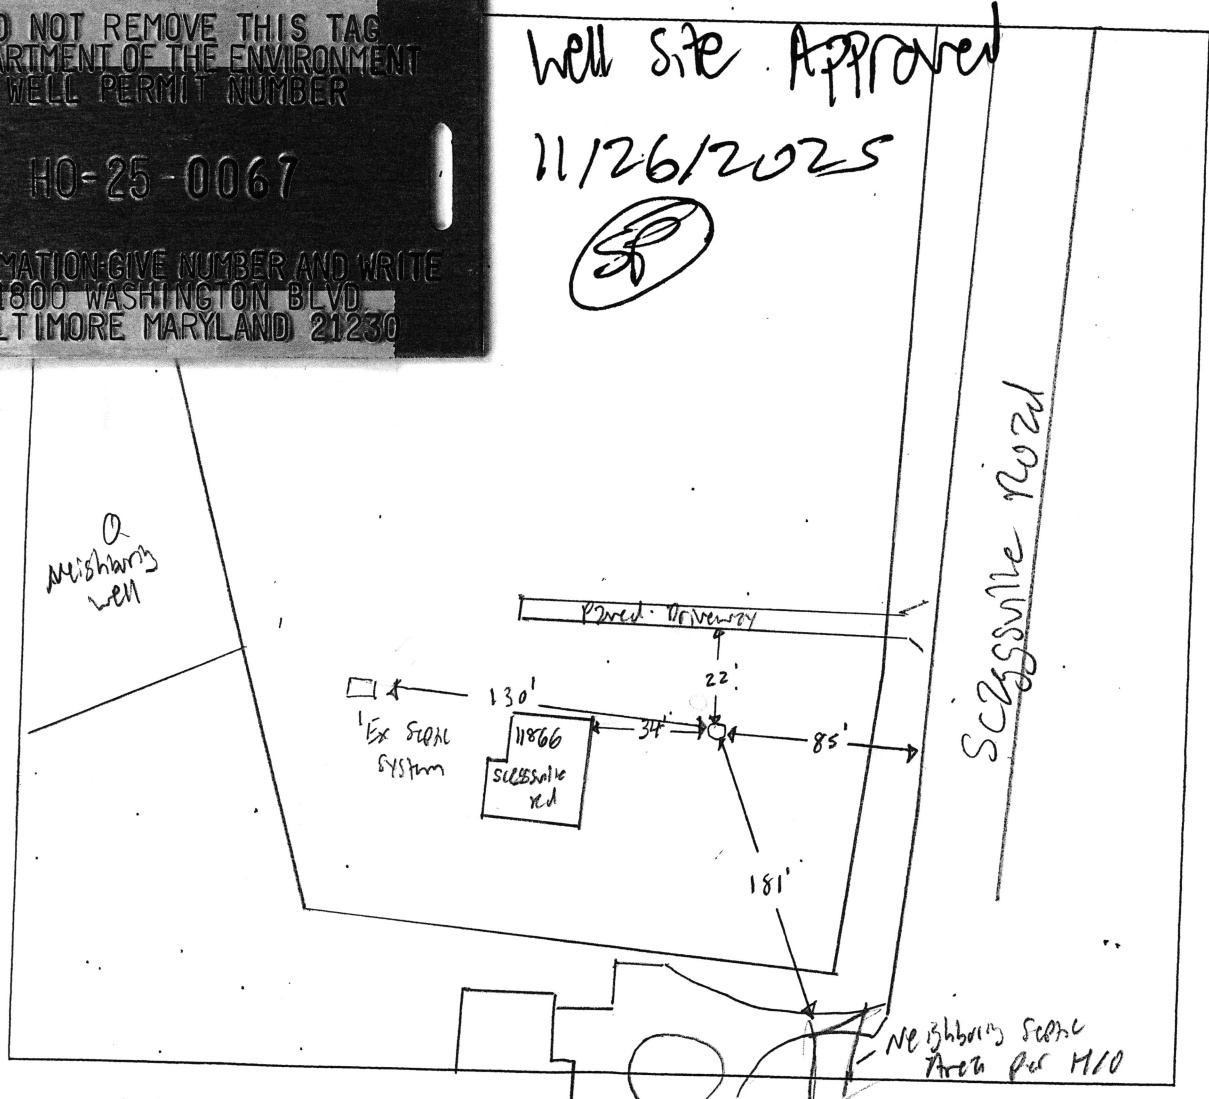 O NOT REMOVE THIS TAG
ARTMENT OF THE ENVIRONMENT
WELL PERMIT NUMBER
HO-25-0067
MATION: GIVE NUMBER AND WRITE
1800 WASHINGTON BLVD
LTIMORE MARYLAND 21230
Well Site Approved
11/26/2025
SP
Scaggsville Road
Neighboring
well
Paved Driveway
22'
130'
34'
85'
Ex Septic
System
11866
scaggsville
rd
181'
Neighboring Septic
Area per H/O